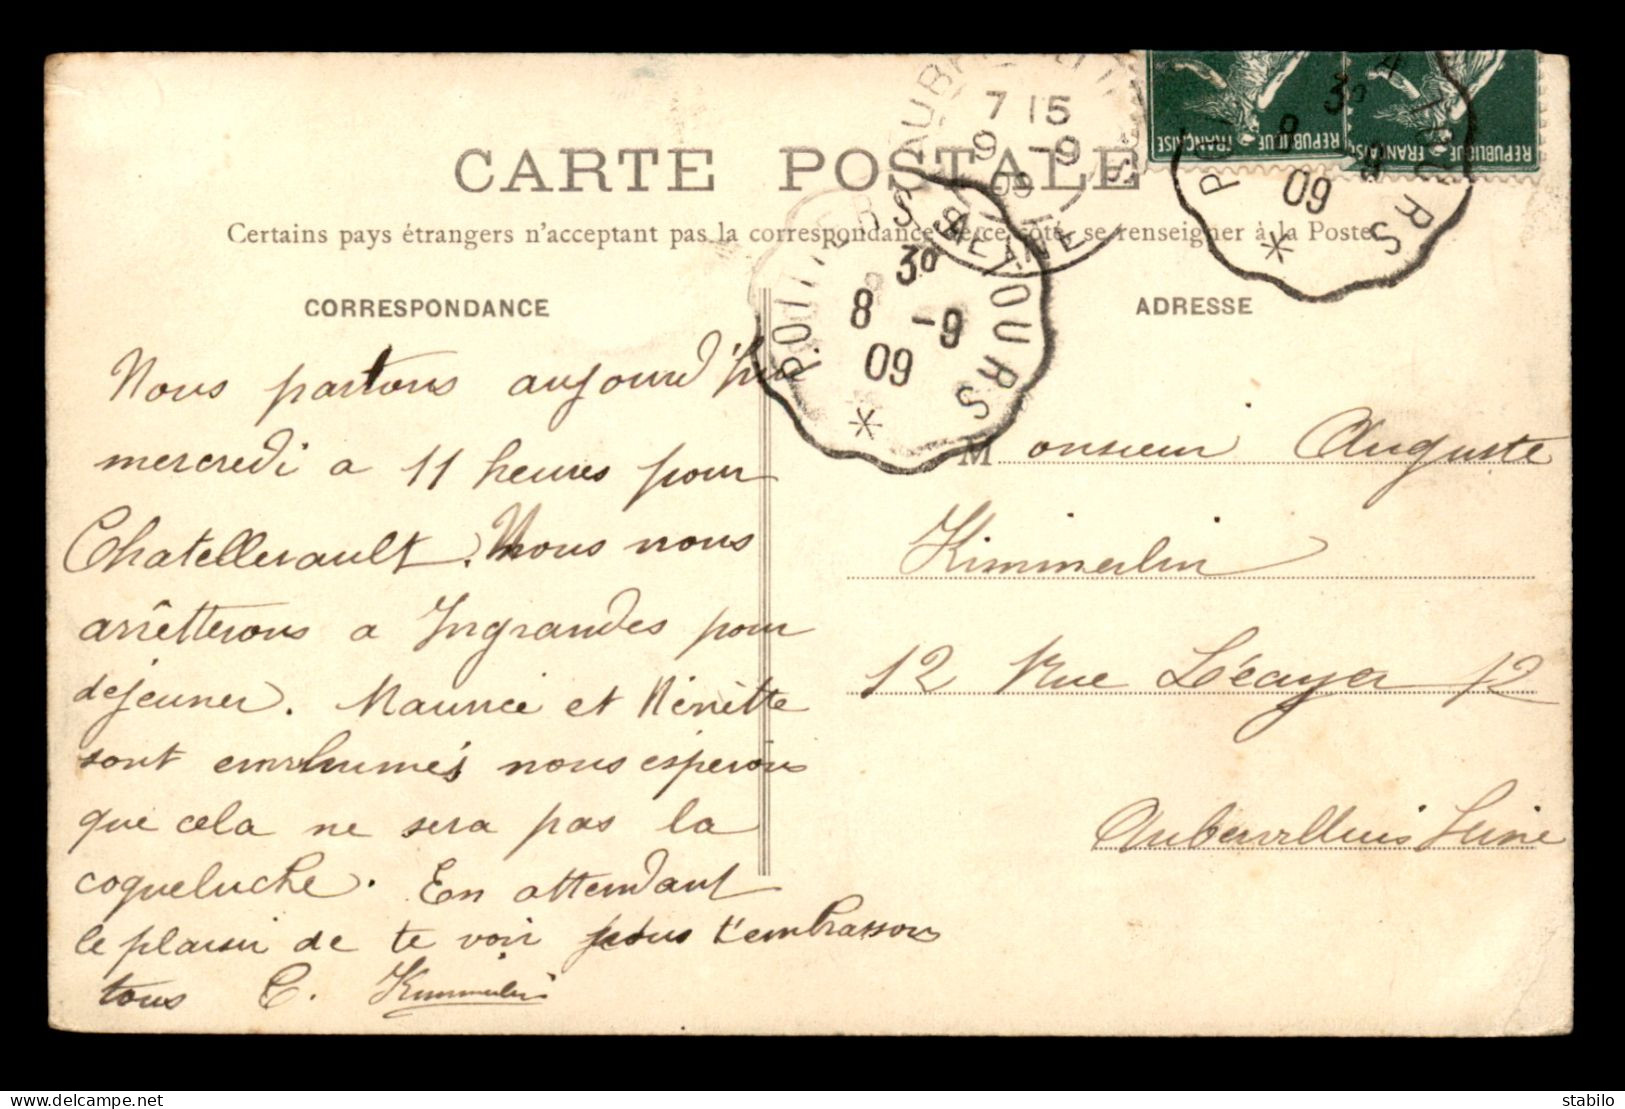 CARTE POSTALE
Certains pays étrangers n'acceptent pas la correspondance de ce côté, se renseigner à la Poste
CORRESPONDANCE
Nous partons aujourd'hui
mercredi a 11 heures pour
Chatellerault. Nous nous
arrêtterons a Ingrandes pour
dejeuner. Maurice et Ninette
sont enrhumés nous esperons
que cela ne sera pas la
coqueluche. En attendant
le plaisir de te voir nous t'embrassons
tous C. Kimmerlin
ADRESSE
Monsieur Auguste
Kimmerlin
12 Rue Lécuyer 12
Aubervilliers Seine
REPUBLIQUE FRANÇAISE
REPUBLIQUE FRANÇAISE
7 15
9 -9
09
SEINE
POITIERS A TOURS
3º
8 -9
09
3º
8
09
stabilo